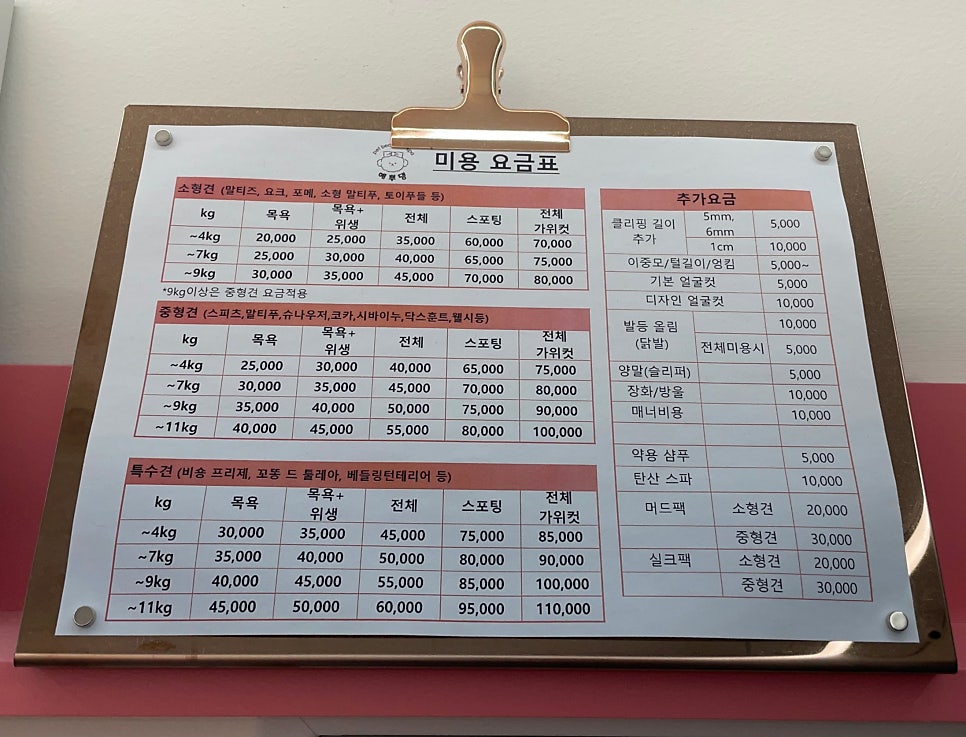 애뽀댕
미용 요금표
소형견 (말티즈, 요크, 포메, 소형 말티푸, 토이푸들 등)
kg 목욕 목욕+위생 전체 스포팅 전체 가위컷
~4kg 20,000 25,000 35,000 60,000 70,000
~7kg 25,000 30,000 40,000 65,000 75,000
~9kg 30,000 35,000 45,000 70,000 80,000
*9kg이상은 중형견 요금적용
중형견 (스피츠,말티푸,슈나우저,코카,시바이누,닥스훈트,웰시등)
kg 목욕 목욕+위생 전체 스포팅 전체 가위컷
~4kg 25,000 30,000 40,000 65,000 75,000
~7kg 30,000 35,000 45,000 70,000 80,000
~9kg 35,000 40,000 50,000 75,000 90,000
~11kg 40,000 45,000 55,000 80,000 100,000
특수견 (비숑 프리제, 꼬똥 드 툴레아, 베들링턴테리어 등)
kg 목욕 목욕+위생 전체 스포팅 전체 가위컷
~4kg 30,000 35,000 45,000 75,000 85,000
~7kg 35,000 40,000 50,000 80,000 90,000
~9kg 40,000 45,000 55,000 85,000 100,000
~11kg 45,000 50,000 60,000 95,000 110,000
추가요금
클리핑 길이 추가 5mm, 6mm 5,000
1cm 10,000
이중모/털길이/엉킴 5,000~
기본 얼굴컷 5,000
디자인 얼굴컷 10,000
발등 올림 (닭발) 10,000
전체미용시 5,000
양말(슬리퍼) 5,000
장화/방울 10,000
매너비용 10,000
약용 샴푸 5,000
탄산 스파 10,000
머드팩 소형견 20,000
중형견 30,000
실크팩 소형견 20,000
중형견 30,000